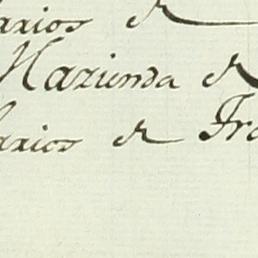 arios de
Hazienda de
arios de Fra